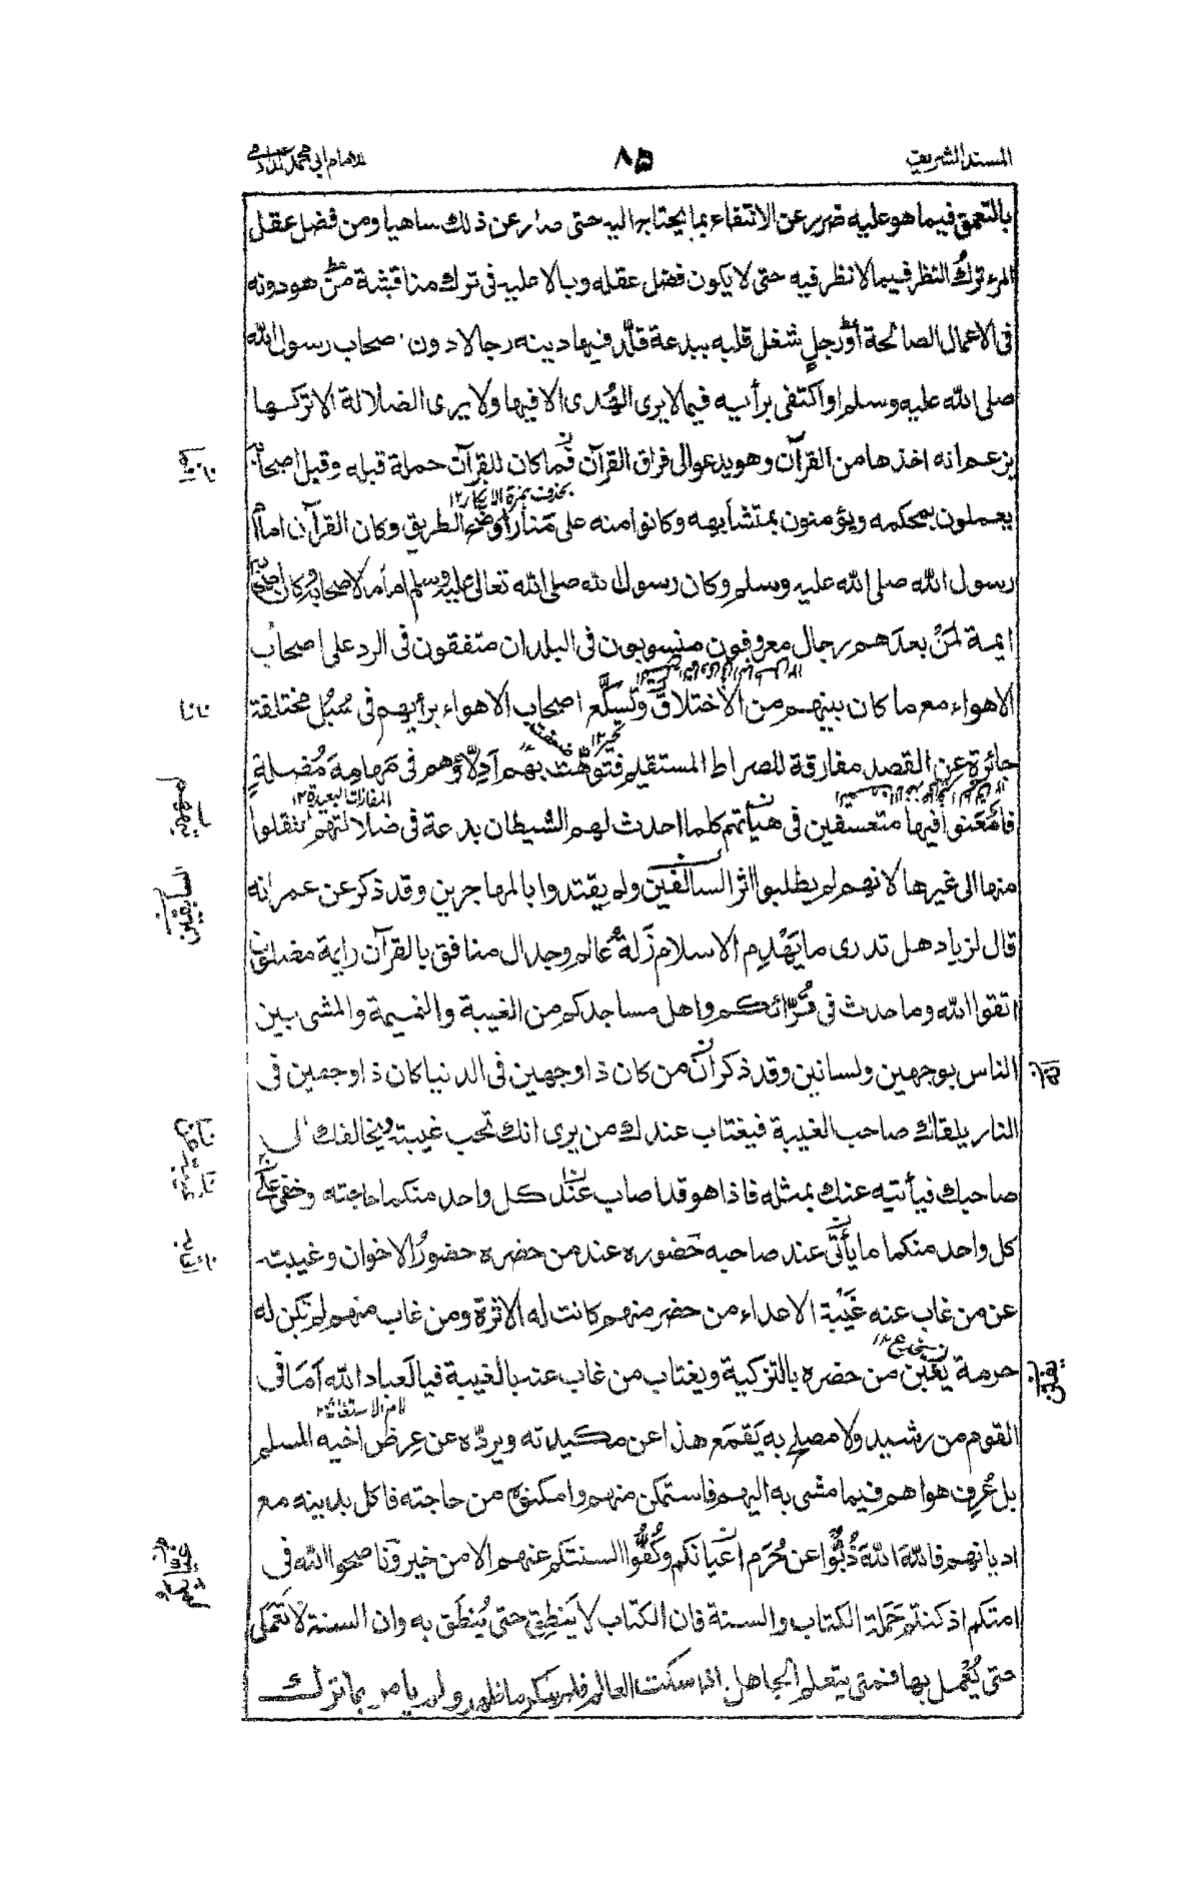 المسند الشريف
٨٥
للامام ابي محمد الدارمي
بالتعمق فيما هو عليه ضرر عن الانتفاع بما يحتاج اليه حتى صار عن ذلك ساهيا ومن فضل عقل
المرء ترك النظر فيما لا نظر فيه حتى لا يكون فضل عقله وبالا عليه في ترك مناقشة من هو دونه
في الاعمال الصالحة او رجل شغل قلبه ببدعة قلد فيها دينه رجالا دون صحاب رسول الله
صلى الله عليه وسلم او اكتفى برأيه فيما لا يرى الهدى الا فيها ولا يرى الضلالة الا تركها
يزعم انه اخذها من القرآن وهو يدعو الى فراق القرآن فما كان للقرآن حملة قبله وقبل اصحابه
بحذف همزة الانكار ١٢
يعملون بمحكمه ويؤمنون بمتشابهه وكانوا منه على منار اوضح الطريق وكان القرآن امام
رسول الله صلى الله عليه وسلم وكان رسول الله صلى الله تعالى عليه وسلم اماما لاصحابه وكان اصحابه
ايمة لمن بعدهم رجال معروفون منسوبون في البلدان متفقون في الرد على اصحاب
الاهواء مع ما كان بينهم من الاختلاق وتسكع اصحاب الاهواء برأيهم في سبل مختلفة
نانا
تحير ١٢
جائرة عن القصد مفارقة للصراط المستقيم فتوهت بهم ادلاؤهم في مهامه مضلة
المفازات البعيدة ١٢
فامعنوا فيها متعسفين في هيأتهم كلما احدث لهم الشيطان بدعة في ضلالتهم انتقلوا
منها الى غيرها لانهم لم يطلبوا اثر السالفين ولم يقتدوا بالمهاجرين وقد ذكر عن عمر انه
السابقين
قال لزياد هل تدرى ما يهدم الاسلام زلة عالم وجدال منافق بالقرآن وايمة مضلون
اتقوا الله وما حدث في قرائكم واهل مساجدكم من الغيبة والنميمة والمشى بين
الناس بوجهين ولسانين وقد ذكر ان من كان ذا وجهين في الدنيا كان ذا وجهين في
النار يلقاك صاحب الغيبة فيغتاب عندك من يرى انك تحب غيبته ويخالفك الى
صاحبك فيأتيه عنك بمثله فاذا هو قد اصاب عند كل واحد منكما حاجته وخفى على
كل واحد منكما ما يأتى عند صاحبه حضوره عند من حضره حضور الاخوان وغيبته
عن من غاب عنه غيبة الاعداء من حضر منهم كانت له الاثرة ومن غاب منهم لم تكن له
حرمة يفتن من حضره بالتزكية ويغتاب من غاب عنه بالغيبة فيا لعباد الله اما في
لام الاستغاثة ١٢
القوم من رشيد ولا مصلح به يقمع هذا عن مكيدته ويرده عن عرض اخيه المسلم
بل عرف هواهم فيما مشى به اليهم فاستمكن منهم وامكنوه من حاجته فاكل بدينه مع
اديانهم فالله الله ذبوا عن حرم اعيانكم وكفوا السنتكم عنهم الا من خير وناصحوا الله في
امتكم اذ كنتم حملة الكتاب والسنة فان الكتاب لا ينطق حتى ينطق به وان السنة لا تعمل
حتى يعمل بها فمتى يتعلم الجاهل اذا سكت العالم فلم ينكر ما ظهر ولم يامر بما ترك